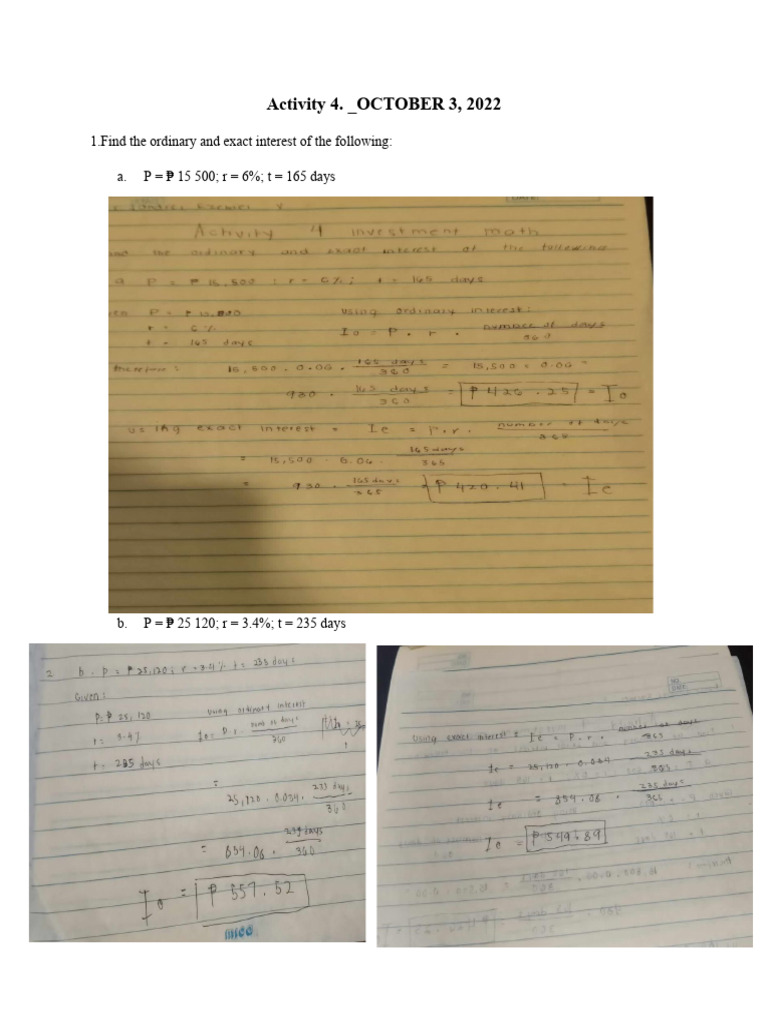 Activity 4. _OCTOBER 3, 2022
1.Find the ordinary and exact interest of the following:
a. P = ₱ 15 500; r = 6%; t = 165 days
Activity 4 investment math
the ordinary and exact interest of the following
P = ₱ 15,500 ; r = 6%; t = 165 days
P =
r = 6%
t = 165 days
using ordinary interest:
Io = P . r . number of days
360
therefore: 15,500 . 0.06 . 165 days = 15,500 x 0.06 =
360
930 . 165 days = ₱ 426.25 = Io
360
using exact interest = Ie = P.r. number of days
365
= 15,500 . 0.06 . 165 days
365
= 930 . 165 days = ₱ 420.41 = Ie
365
b. P = ₱ 25 120; r = 3.4%; t = 235 days
2 b. P = ₱ 25,120; r = 3.4% t = 235 days
Given:
P = ₱ 25,120
r = 3.4%
t = 235 days
using ordinary interest
Io = P . r . days
360
= 25,120 . 0.034 . 235 days
360
= 854.08 . 235 days
360
Io = ₱ 557.52
NO.
DATE
using exact interest = Ie = P . r . number of days
365
Ie = 25,120 . 0.034 235 days
365
Ie = 854.08 . 235 days
365
Ie = ₱ 549.89